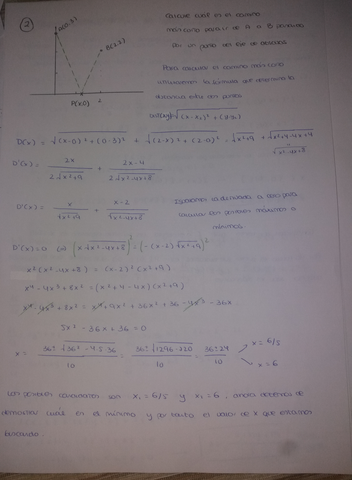 ②
A(0,3)
B(2,2)
P(x,0)
Calcular cuál es el camino
mínimo para ir de A a B pasando
por un punto del eje de abscisas
Para calcular el camino mínimo
utilizaremos la fórmula que determina la
distancia entre dos puntos
D(x) = √(x-0)² + (0-3)² + √(2-x)² + (2-0)² = √x²+9 + √x²-4x+8
D'(x) = 2x / 2√x²+9 + 2x-4 / 2√x²-4x+8
D'(x) = x / √x²+9 + x-2 / √x²-4x+8
Igualamos la derivada a cero para
calcular los puntos máximos o
mínimos.
D'(x)=0 [x·√x²-4x+8]² = [-(x-2)√x²+9]²
x²(x²-4x+8) = (x-2)²(x²+9)
x⁴-4x³+8x² = (x²+4-4x)(x²+9)
5x² - 36x + 36 = 0
x = 36±√36²-4·5·36 / 10 = 36±√1296-720 / 10 = 36±24 / 10
x = 6/5
x = 6
Los puntos obtenidos son x₁ = 6/5 y x₂ = 6, ahora debemos de
demostrar cuál es el mínimo y por tanto el valor de x que estamos
buscando